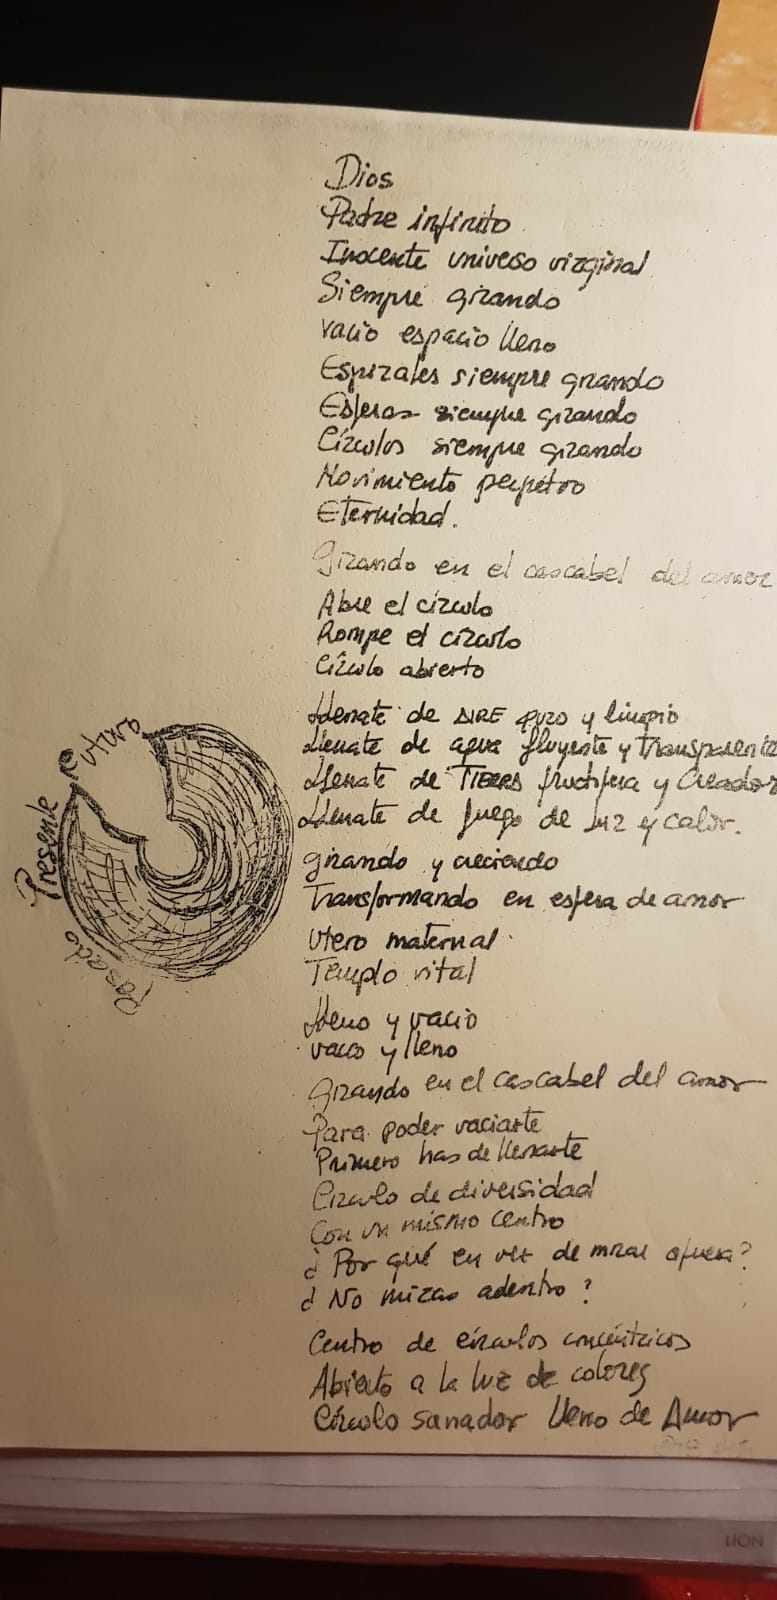 Dios
Padre infinito
Inocente universo virginal
Siempre girando
vacio espacio lleno
Espirales siempre girando
Esferas siempre girando
Círculos siempre girando
Movimiento perpétuo
Eternidad.
Girando en el cascabel del amor
Abre el círculo
Rompe el círculo
Círculo abierto
Llenate de AIRE puro y limpio
Llenate de agua fluyente y transparente
Llenate de TIERRA fructifera y Creador
Llenate de fuego de luz y calor.
Girando y creciendo
Transformando en esfera de amor
Utero maternal
Templo vital
Lleno y vacio
vacio y lleno
Girando en el cascabel del amor
Para poder vaciarte
Primero has de llenarte
Circulo de diversidad
Con un mismo centro
¿Por qué en vez de mirar afuera?
¿No miras adentro?
Centro de círculos concéntricos
Abierto a la luz de colores
Círculo sanador lleno de Amor
Futuro
Presente
Pasado
LION